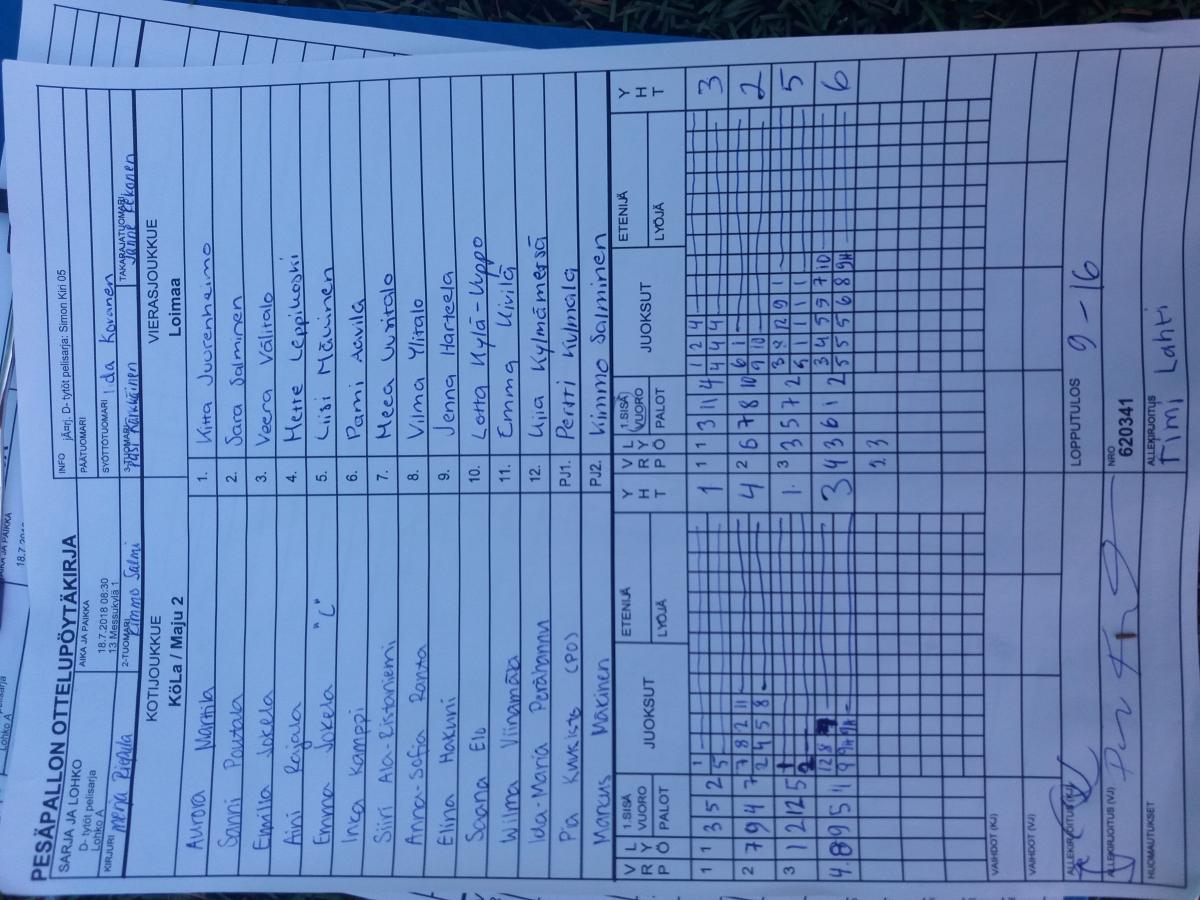 PESÄPALLON OTTELUPÖYTÄKIRJA
SARJA JA LOHKO
D- tytöt pelisarja
Lohko A
AIKA JA PAIKKA
18.7.2018 08:30
13 Messukylä 1
INFO jÄ¤rj. D- tytöt pelisarja: Simon Kiri 05
PÄÄTUOMARI
SYÖTTÖTUOMARI Iida Koranen
KIRJURI Merja
2-TUOMARI Kimmo Salmi
3-TUOMARI Pasi Kärkkäinen
TAKARAJATUOMARI Janne
KOTIJOUKKUE
KöLa / Maju 2
VIERASJOUKKUE
Loimaa
Aurora Marttila 1. Kitta Juurenheimo
Sanni Pautala 2. Sara Salminen
Emilia Jokela 3. Veera Välitalo
Aini Rajala 4. Mette Leppikoski
Emma Jokela "C" 5. Liisi Mäkinen
Inka Kamppi 6. Pami
Siiri Ala-Ristaniemi 7. Meea Uusitalo
Anna-Sofia Ranta 8. Vilma Ylitalo
Elina Hakuni 9. Jenna Harteela
Saana Elo 10. Lotta Kylä-Uuppo
Wilma Viinamäki 11. Emma Kivilä
Ida-Maria Perähannu 12. Kiia Kylmämetsä
Pia (PO) PJ1. Pertti Kylmälä
Markus Mäkinen PJ2. Kimmo Salminen
V R P L Y Ö 1.SISÄ VUORO PALOT JUOKSUT ETENIJÄ LYÖJÄ Y H T
V R P L Y Ö 1.SISÄ VUORO PALOT JUOKSUT ETENIJÄ LYÖJÄ Y H T
1 1 3 5 2 1 5 1
1 1 3 11 4 1 2 4 4 4 4 3
2 7 9 4 7 7 8 2 11 2 4 5 8 4
2 6 7 8 10 6 1 9 10 2
3 1 2 12 5 1 2 1
3 3 5 7 2 3 8 12 9 1 9 1 1 1 1 5
4. 8 9 5 11 12 8 7 9 9H 9H 3
4 3 6 1 2 3 4 5 9 7 10 5 5 5 6 8 9H 6
23
VAIHDOT (KJ)
VAIHDOT (VJ)
ALLEKIRJOITUS (KJ)
LOPPUTULOS 9 - 16
ALLEKIRJOITUS (VJ)
NRO
620341
HUOMAUTUKSET
ALLEKIRJOITUS
Timi Lahti
AIKA JA PAIKKA
Pelisarja
Lohko A